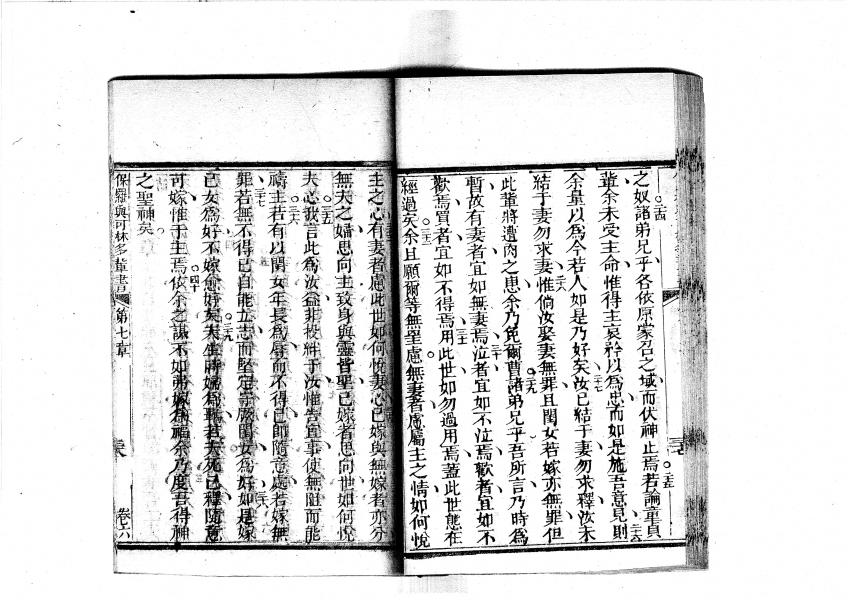 之奴諸弟兄乎各依原蒙召之域而伏神止焉若論童貞
輩余未受主命惟得主哀矜以為忠而如是施吾意見則
余量以為今若人如是乃好矣汝已結于妻勿求釋汝未
結于妻勿求妻惟倘汝娶妻無罪且閨女若嫁亦無罪但
此輩將遭肉之患余乃免爾曹諸弟兄乎吾所言乃時為
暫故有妻者宜如無妻焉泣者宜如不泣焉歡者宜如不
歡焉買者宜如不得焉用此世如勿過用焉蓋此世態在
經過矣余且願爾等無罣慮無妻者慮屬主之情如何悅
主之心有妻者慮此世如何悅妻心已嫁與無嫁者亦分
無夫之婦思向主致身與靈皆聖已嫁者思向世如何悅
夫心我言此為汝益非投絆于汝惟告宜事使無阻而能
禱主若有以閨女年長為辱而不得已即隨意處若嫁無
罪若無不得已自能立志而堅定守厥閨女為好如是嫁
己女為好不嫁愈好矣夫生時婦為聽若夫死已釋隨意
可嫁惟于主焉依余之謀不如弗嫁為福余乃度吾得神
之聖神矣
保羅與可林多輩書 第七章 卷六